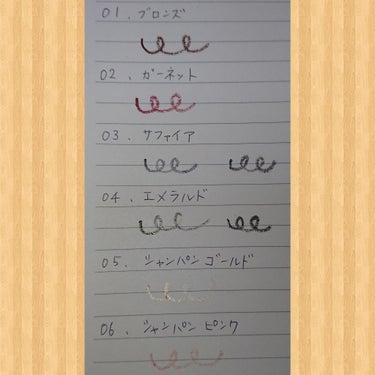 01. ブロンズ
02. ガーネット
03. サファイア
04. エメラルド
05. シャンパンゴールド
06. シャンパンピンク